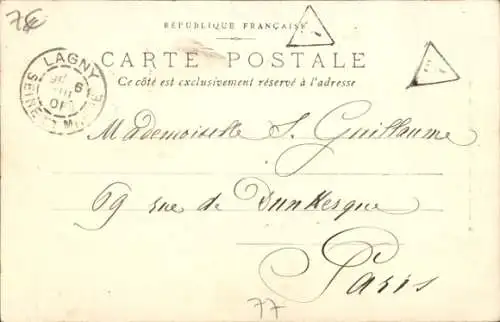 7€
RÉPUBLIQUE FRANÇAISE
CARTE POSTALE
Ce côté est exclusivement réservé à l'adresse
LAGNY
SEINE ET MARNE
Mademoiselle S. Guillaume
69 rue de Dunkerque
Paris
77